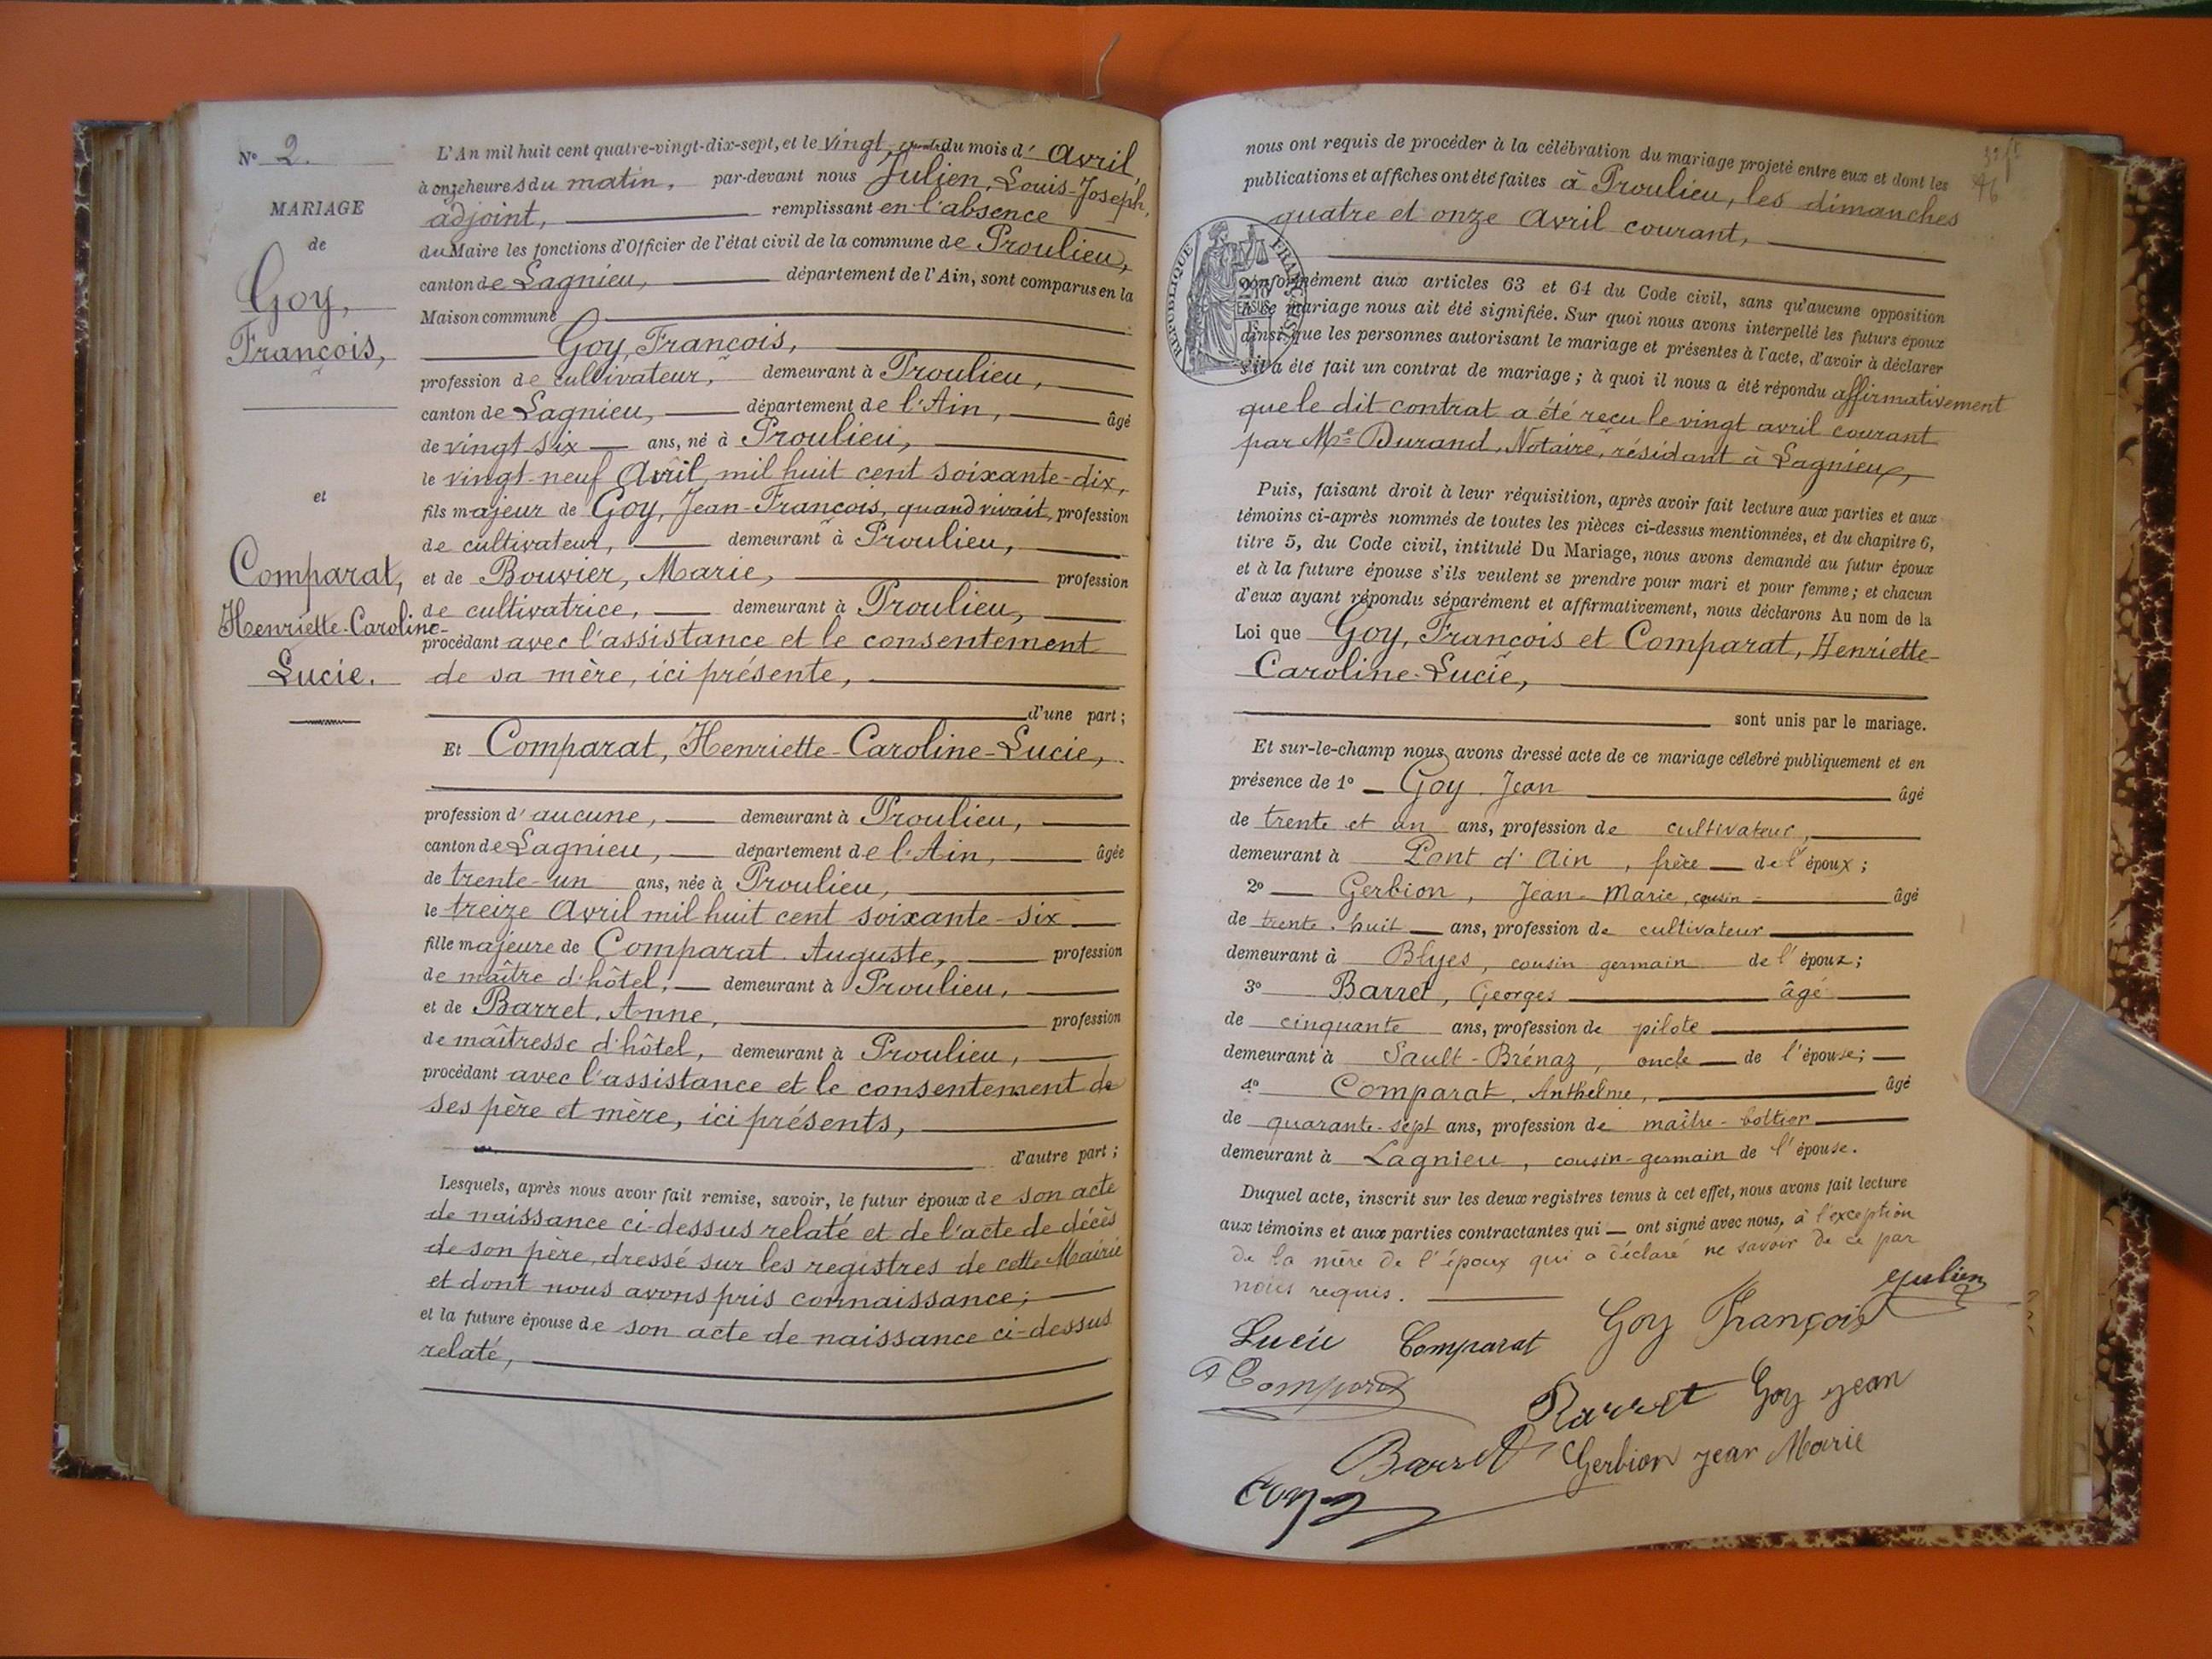 N° 2.
MARIAGE
de
Goy,
François,
et
Comparat,
Henriette-Caroline-
Lucie.
L'An mil huit cent quatre-vingt-dix-sept, et le vingt-quatre du mois d'Avril,
à onze heures du matin, par-devant nous Julien, Louis-Joseph,
adjoint, remplissant en l'absence
du Maire les fonctions d'Officier de l'état civil de la commune de Proulieu,
canton de Lagnieu, département de l'Ain, sont comparus en la
Maison commune
Goy, François,
profession de cultivateur, demeurant à Proulieu,
canton de Lagnieu, département de l'Ain, âgé
de vingt-six ans, né à Proulieu,
le vingt-neuf Avril mil huit cent soixante-dix,
fils majeur de Goy, Jean-François, quand vivait, profession
de cultivateur, demeurant à Proulieu,
et de Bouvier, Marie, profession
de cultivatrice, demeurant à Proulieu,
procédant avec l'assistance et le consentement
de sa mère, ici présente,
d'une part;
Et Comparat, Henriette-Caroline-Lucie,
profession d'aucune, demeurant à Proulieu,
canton de Lagnieu, département de l'Ain, âgée
de trente-un ans, née à Proulieu,
le treize Avril mil huit cent soixante-six
fille majeure de Comparat Auguste, profession
de maître d'hôtel, demeurant à Proulieu,
et de Barret, Anne, profession
de maîtresse d'hôtel, demeurant à Proulieu,
procédant avec l'assistance et le consentement de
ses père et mère, ici présents,
d'autre part;
Lesquels, après nous avoir fait remise, savoir, le futur époux de son acte
de naissance ci-dessus relaté et de l'acte de décès
de son père, dressé sur les registres de cette Mairie
et dont nous avons pris connaissance;
et la future épouse de son acte de naissance ci-dessus
relaté,
46
nous ont requis de procéder à la célébration du mariage projeté entre eux et dont les
publications et affiches ont été faites à Proulieu, les dimanches
quatre et onze Avril courant,
RÉPUBLIQUE FRANÇAISE
conformément aux articles 63 et 64 du Code civil, sans qu'aucune opposition
à ce mariage nous ait été signifiée. Sur quoi nous avons interpellé les futurs époux
ainsi que les personnes autorisant le mariage et présentes à l'acte, d'avoir à déclarer
s'il a été fait un contrat de mariage; à quoi il nous a été répondu affirmativement
que le dit contrat a été reçu le vingt avril courant
par Me Durand, Notaire, résidant à Lagnieu,
Puis, faisant droit à leur réquisition, après avoir fait lecture aux parties et aux
témoins ci-après nommés de toutes les pièces ci-dessus mentionnées, et du chapitre 6,
titre 5, du Code civil, intitulé Du Mariage, nous avons demandé au futur époux
et à la future épouse s'ils veulent se prendre pour mari et pour femme; et chacun
d'eux ayant répondu séparément et affirmativement, nous déclarons Au nom de la
Loi que Goy, François et Comparat, Henriette-
Caroline-Lucie,
sont unis par le mariage.
Et sur-le-champ nous avons dressé acte de ce mariage célébré publiquement et en
présence de 1° Goy Jean âgé
de trente et un ans, profession de cultivateur,
demeurant à Pont d'Ain, frère de l'époux;
2° Gerbion, Jean-Marie, cousin âgé
de trente-huit ans, profession de cultivateur
demeurant à Blyes, cousin germain de l'époux;
3° Barret, Georges âgé
de cinquante ans, profession de pilote
demeurant à Sault-Brénaz, oncle de l'épouse;
4° Comparat, Anthelme, âgé
de quarante-sept ans, profession de maître-bottier
demeurant à Lagnieu, cousin-germain de l'épouse.
Duquel acte, inscrit sur les deux registres tenus à cet effet, nous avons fait lecture
aux témoins et aux parties contractantes qui ont signé avec nous, à l'exception
de la mère de l'époux qui a déclaré ne savoir de ce par
nous requis.
Julien
Lucie Comparat Goy François
A Comparat
Barret Goy jean
Barret Gerbion jean Marie